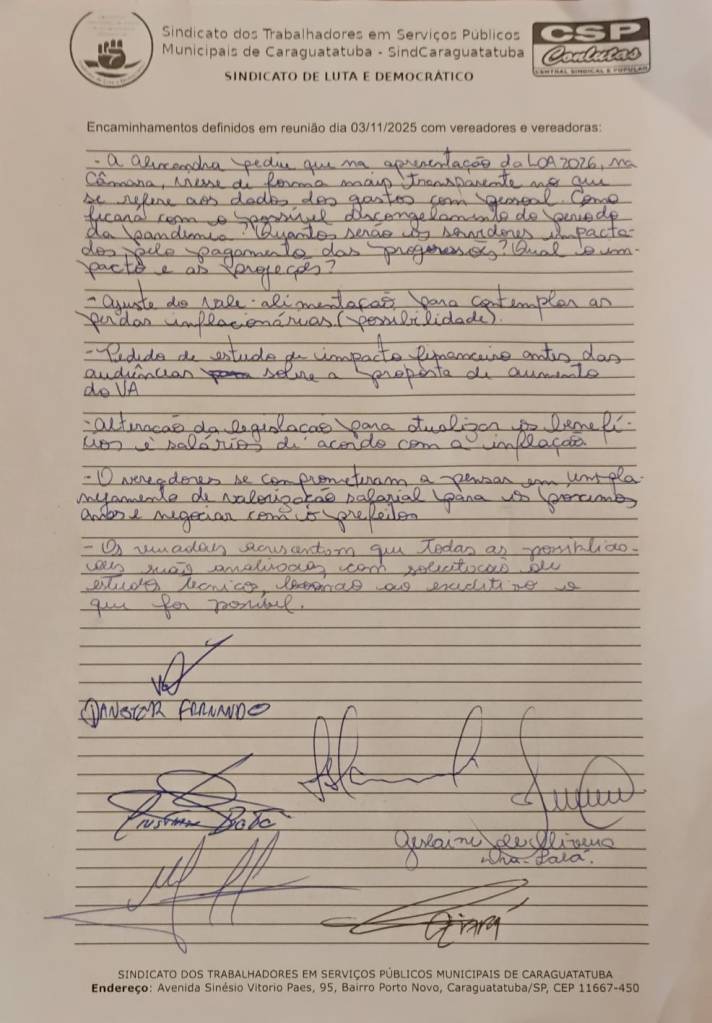 Sindicato dos Trabalhadores em Serviços Públicos
Municipais de Caraguatatuba - SindCaraguatatuba
SINDICATO DE LUTA E DEMOCRÁTICO
CSP
Conlutas
CENTRAL SINDICAL E POPULAR
Encaminhamentos definidos em reunião dia 03/11/2025 com vereadores e vereadoras:
- A Alexandra pediu que na apresentação da LOA 2026, na
Câmara, viesse de forma mais transparente no que
se refere aos dados dos gastos com pessoal. Como
ficará com o possível discongelamento do período
da pandemia? Quantos serão os servidores impacta-
dos pelo pagamento das progressões? Qual o im-
pacto e as projeções?
- Ajuste do vale-alimentação para contemplar as
perdas inflacionárias. (possibilidade).
- Pedido de estudo de impacto financeiro antes das
audiências sobre a proposta de aumento
do VA
- Alteração da legislação para atualizar os benefí-
cios e salários de acordo com a inflação
- O vereadores se comprometeram a pensar em um pla-
nejamento de valorização salarial para os próximos
anos e negociar com o prefeito
- Os vereadores acrescentam que todas as possibilida-
des serão analisadas, com solicitação de
estudos técnicos, levando ao executivo o
que for possível.
FERNANDO
Gislaine de Oliveira